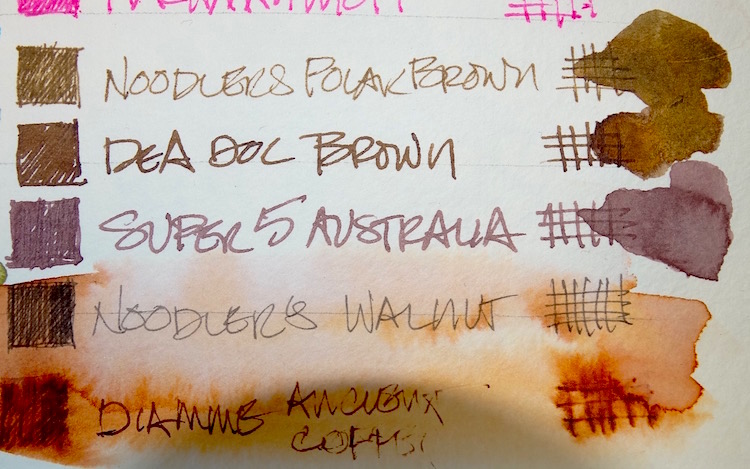 NOODLERS POLAR BROWN
DEA DOC BROWN
SUPER 5 AUSTRALIA
NOODLER'S WALNUT
DIAMINE ANCIENT
COFFEE